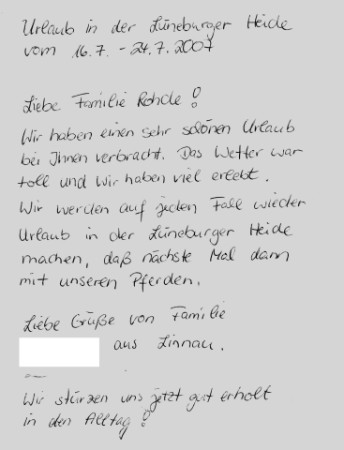 Urlaub in der Lüneburger Heide
vom 16.7. - 24.7.2007
Liebe Familie Rohde!
Wir haben einen sehr schönen Urlaub
bei Ihnen verbracht. Das Wetter war
toll und wir haben viel erlebt.
Wir werden auf jeden Fall wieder
Urlaub in der Lüneburger Heide
machen, daß nächste Mal dann
mit unseren Pferden.
Liebe Grüße von Familie
aus Linnau.
Wir stürzen uns jetzt gut erholt
in den Alltag!